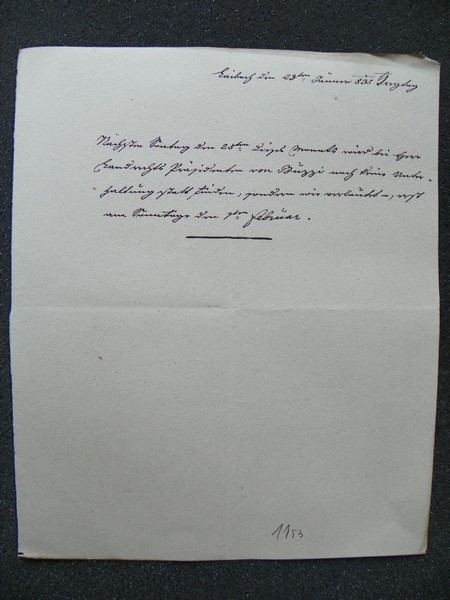 Laibach den 23ten Jänner 835 Freytag
Nächsten Sontag den 25ten dieses Monats wird bei Herr
Landrechts Präsidenten von Buzzi noch keine Unter-
haltung statt finden, sondern wie verlautet –, erst
am Sonntage den 1ten Februar.
1153